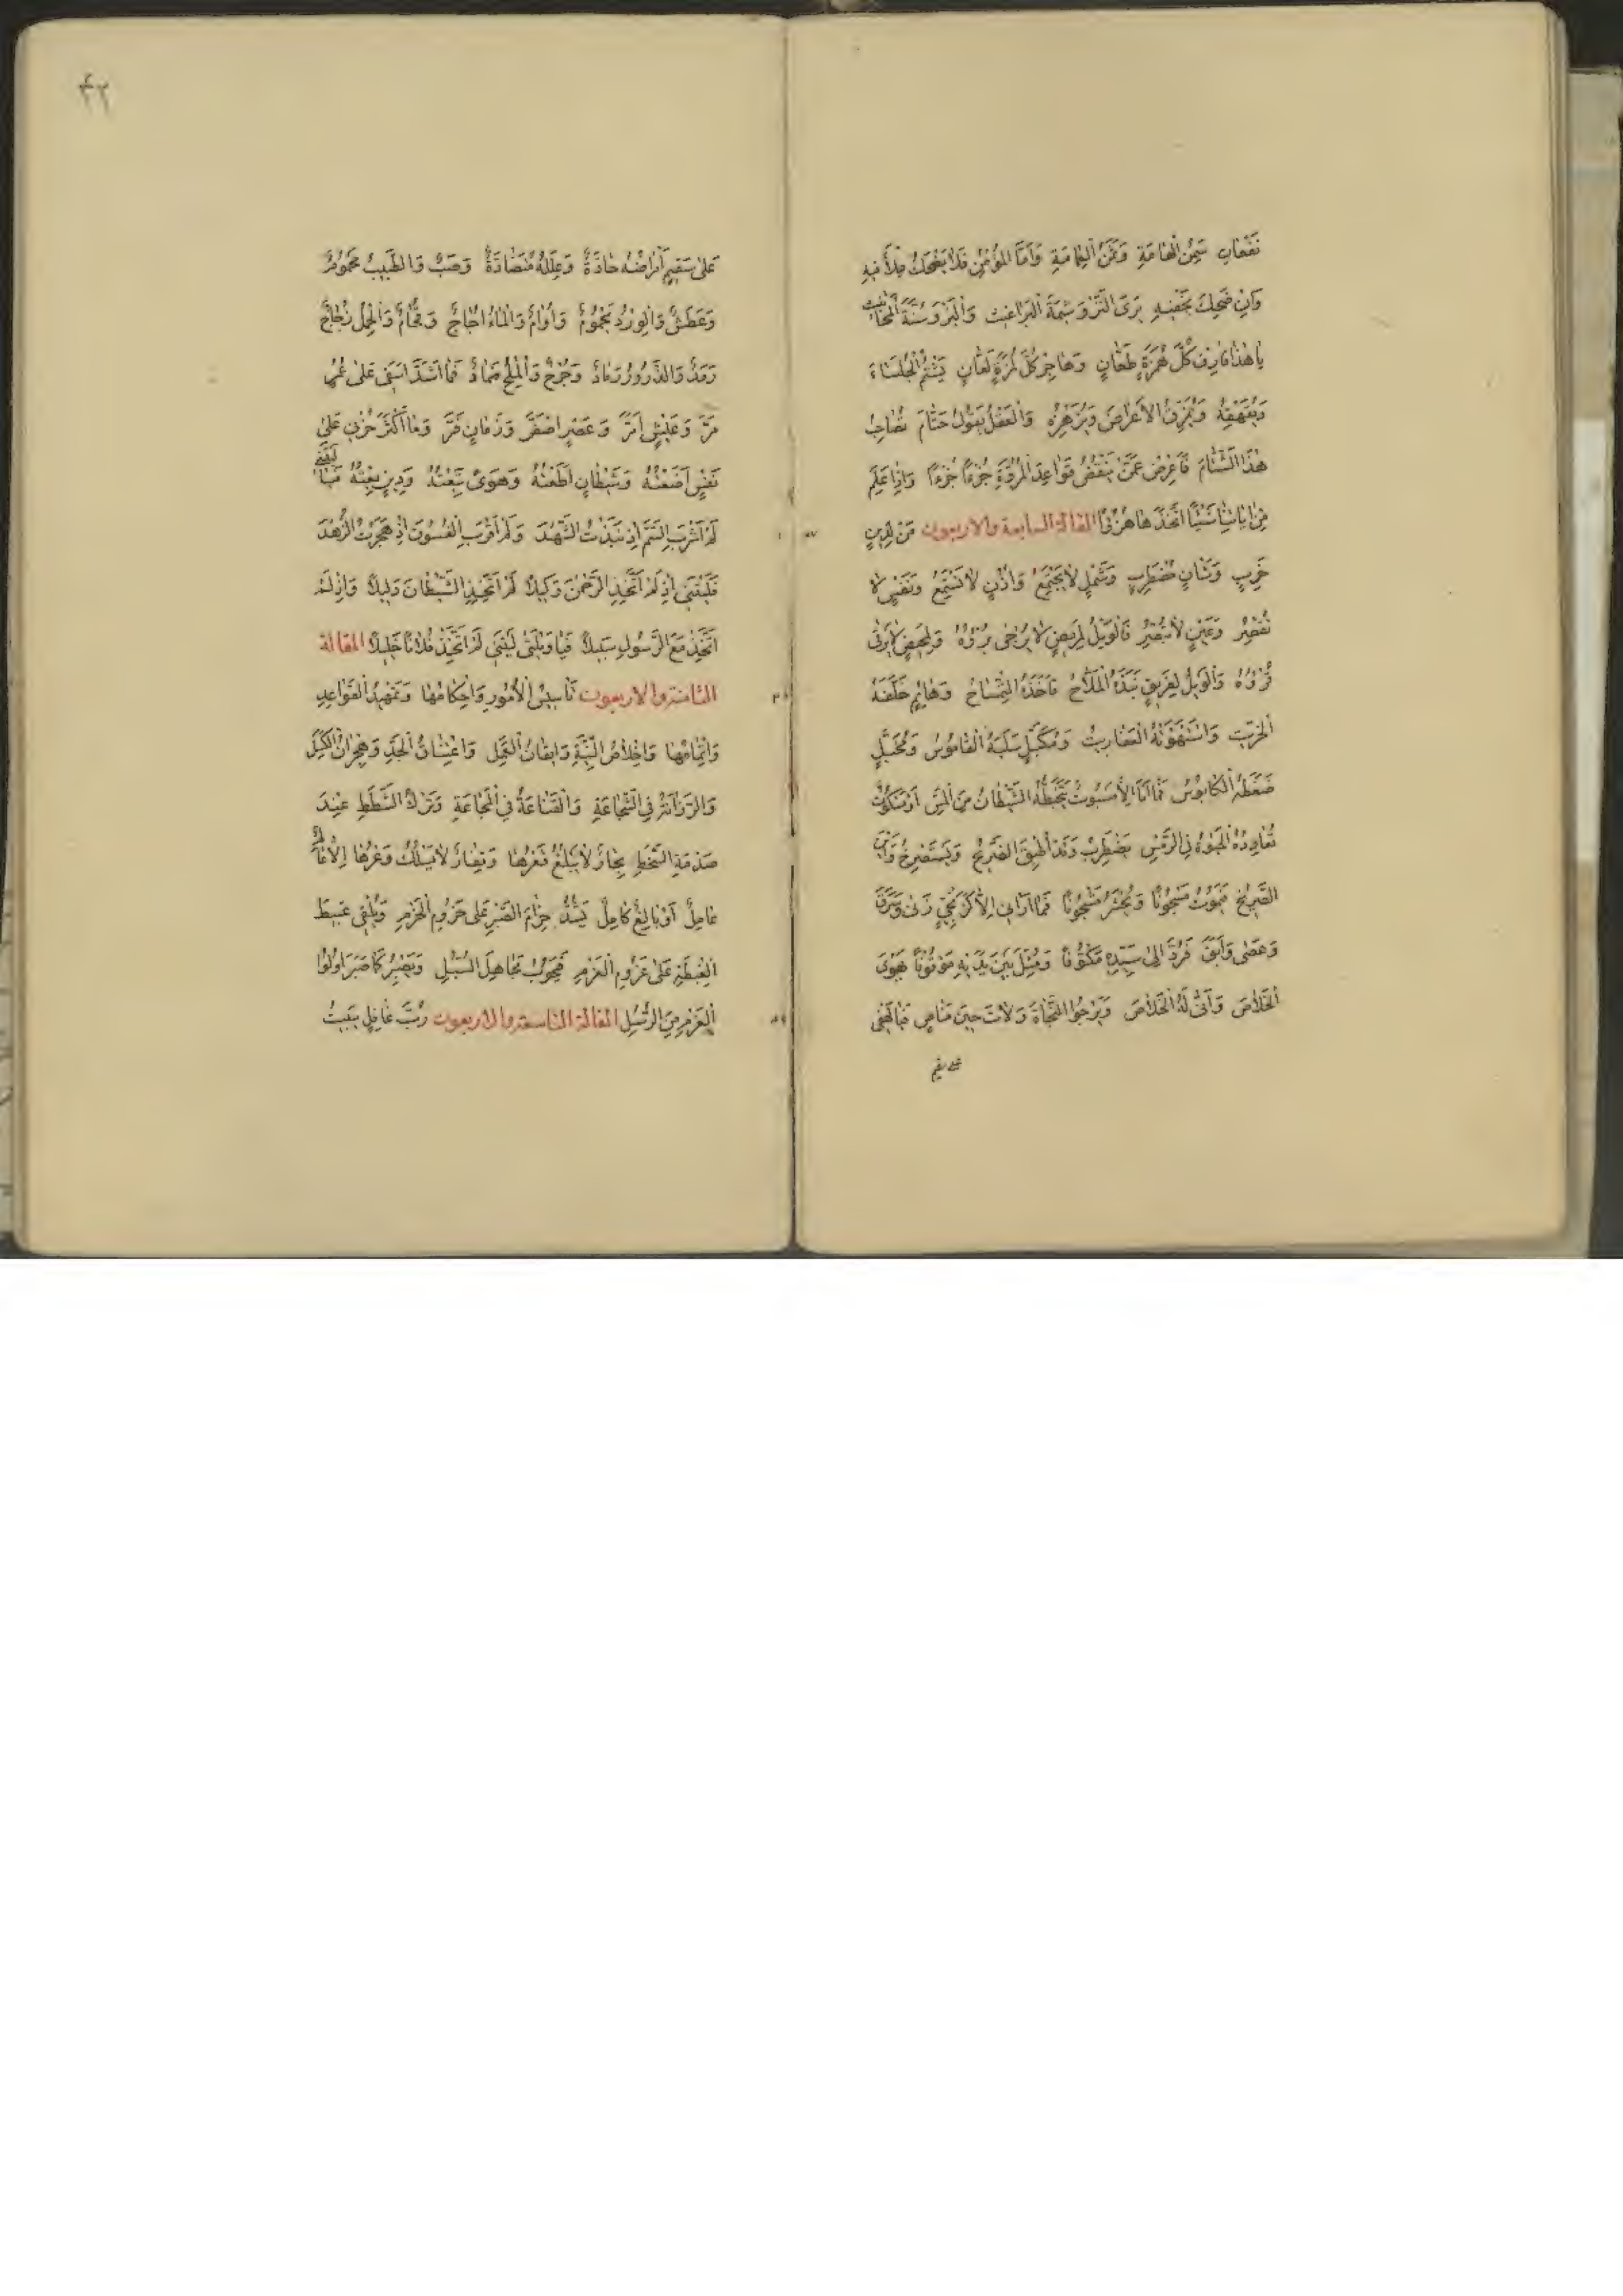 نَقْعَانِ سِمَنُ الْهَامَةِ وَثَمَنُ الْعِمَامَةِ وَاَمَّا الْمُؤْمِنُ فَلَا يَضْحَكُ مِلْأَ فِيهِ
وَاِنْ ضَحِكَ يُخْفِيهِ يَرَى النَّزْوَ شِيمَةَ الْبَرَاغِيثِ وَالْبَزْوَ سُنَّةَ الْمَخَانِيثِ
يَا هٰذَا فَارِقْ كُلَّ هُمَزَةٍ طَعَّانٍ وَهَاجِرْ كُلَّ لُمَزَةٍ لَعَّانٍ يَشْتُمُ الْجُلَسَاءَ
وَيُقَهْقِهُ وَيُمَزِّقُ الْاَعْرَاضَ وَيُزَهْزِهُ وَالْعَقْلُ يَقُولُ حَتَّامَ تُصَاحِبُ
هٰذَا الشَّتَّامَ فَاَعْرِضْ عَمَّنْ يَنْقُضُ قَوَاعِدَ الْمُرُوَّةِ جُزْءًا جُزْءًا وَاِذَا عَلِمَ
مِنْ اٰيَاتِنَا شَيْئًا اتَّخَذَهَا هُزُؤًا المقالة السابعة والاربعون مَنْ لِدِينٍ
خَرِبٍ وَشَانٍ مُضْطَرِبٍ وَشَمْلٍ لَا يَجْتَمِعُ وَاُذُنٍ لَا تَسْتَمِعُ وَنَفْسٍ لَا
تُقْصِرُ وَعَيْنٍ لَا تُبْصِرُ فَالْوَيْلُ لِمَرِيضٍ لَا يُرْجٰى بُرْؤُهُ
وَالْوَيْلُ لِغَرِيقٍ نَبَذَهُ الْمَلَّاحُ فَاَخَذَهُ التِّمْسَاحُ وَهَائِمٍ خَلَّفَهُ
الْخِرِّيتُ وَاسْتَهْوَتْهُ الْعَفَارِيتُ وَمُكَبَّلٍ سَلَبَهُ الْقَامُوسُ وَمُخَبَّلٍ
ضَغَطَهُ الْكَابُوسُ فَمَا اَنَا اِلَّا مَسْبُوتٌ يَتَخَبَّطُهُ الشَّيْطَانُ مِنَ الْمَسِّ اَوْ مَسْكُوتٌ
تُعَاوِدُهُ الْحَيٰوةُ فِي الرَّمْسِ يَضْطَرِبُ وَقَدْ اُطْبِقَ الضَّرِيحُ وَيَسْتَصْرِخُ وَاَيْنَ
الصَّرِيخُ فَيَمُوتُ مَسْجُونًا وَيُحْشَرُ مَشْجُونًا فَمَا اَرَانِي اِلَّا كَزَنْجِيٍّ زَنٰى وَسَرَقَ
وَعَصٰى وَاَبَقَ فَرُدَّ اِلٰى سَيِّدِهِ مَكْتُوفًا وَمُثِّلَ بَيْنَ يَدَيْهِ مَوْقُوفًا يَهْوَى
الْخَلَاصَ وَاَنّٰى لَهُ الْخَلَاصُ وَيَرْجُوا النَّجَاةَ وَلَاتَ حِينَ مَنَاصٍ فَيَا لَهَفِي
على سقيم
٤٢
عَلٰى سَقِيمٍ اَمْرَاضُهُ حَادَّةٌ وَعِلَلُهُ مُتَضَادَّةٌ وَصَبٌ وَالطَّبِيبُ مَحْمُومٌ
وَعَطَشٌ وَالْوِرْدُ يَحْمُومٌ وَاُوَامٌ وَالْمَاءُ اُجَاجٌ وَالْحِمْلُ زُجَاجٌ
رَمَدٌ وَالذَّرُورُ رَمَادٌ وَجُرْحٌ وَالْمِلْحُ ضِمَادٌ فَمَا اَشَدَّ اَسَفِي عَلٰى عُمْرٍ
مَرَّ وَعَيْشٍ اَمَرَّ وَعَصْرٍ اصْفَرَّ وَزَمَانٍ فَرَّ وَمَا اَكْثَرَ حُزْنِي عَلٰى
نَفْسٍ اَضَعْتُهُ وَشَيْطَانٍ اَطَعْتُهُ وَهَوًى تَبِعْتُهُ وَدِينٍ بِعْتُهُ فَيَا لَيْتَنِي
لَمْ اَشْرَبِ السَّمَّ اِذْ نَبَذْتُ الشُّهْدَ وَلَمْ اَقْرَبِ الْفُسُوقَ اِذْ هَجَرْتُ الزُّهْدَ
فَلَيْتَنِي اِذْ لَمْ اَتَّخِذِ الرَّحْمٰنَ وَكِيلًا لَمْ اَتَّخِذِ الشَّيْطَانَ دَلِيلًا وَاِذْ لَمْ
اَتَّخِذْ مَعَ الرَّسُولِ سَبِيلًا فَيَا وَيْلَتٰى لَيْتَنِي لَمْ اَتَّخِذْ فُلَانًا خَلِيلًا المقالة
الثامنة والاربعون تَأْسِيسُ الْاُمُورِ وَاِحْكَامُهَا وَتَمْهِيدُ الْقَوَاعِدِ
وَاِتْمَامُهَا وَاِخْلَاصُ النِّيَّةِ وَاِتْقَانُ الْعَمَلِ وَاعْتِنَاقُ الْجِدِّ وَهِجْرَانُ الْكَسَلِ
وَالرَّزَانَةُ فِي الشَّجَاعَةِ وَالْقَنَاعَةُ فِي الْمَجَاعَةِ وَتَرْكُ الشَّطَطِ عِنْدَ
صَدْمَةِ السَّخَطِ بِحَارٌ لَا يَبْلُغُ قَعْرَهَا وَقِفَارٌ لَا يَسْلُكُ وَعْرَهَا اِلَّا عَالِمٌ
عَامِلٌ اَوْ بَالِغٌ كَامِلٌ يَشُدُّ حِزَامَ الصَّبْرِ عَلٰى حَيْزُومِ الْحَزْمِ وَيُلْقِي غَبِيطَ
الْغِبْطَةِ عَلٰى عَزُومِ الْعَزْمِ فَيَجُوبُ مَجَاهِلَ السُّبُلِ وَيَصْبِرُ كَمَا صَبَرَ اُولُوا
الْعَزْمِ مِنَ الرُّسُلِ المقالة التاسعة والاربعون رُبَّ غَافِلٍ يَبِيتُ